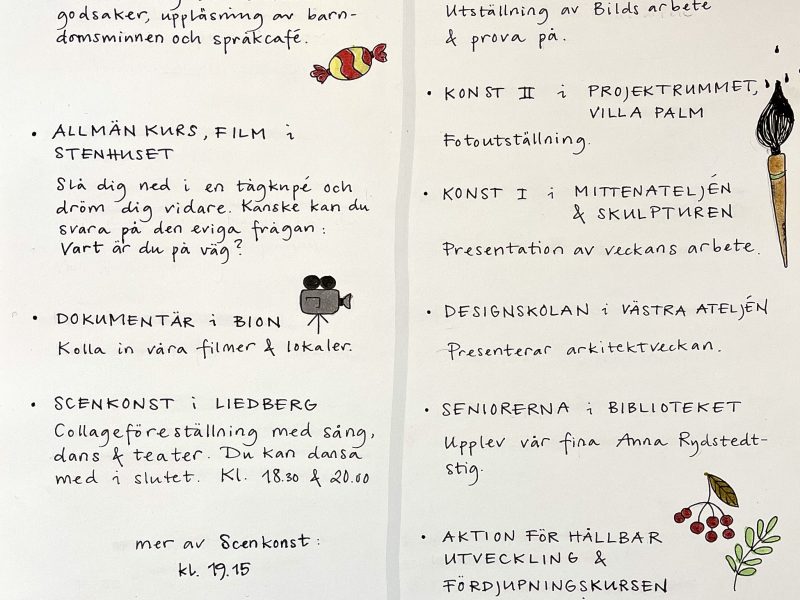 godsaker, uppläsning av barn-
domsminnen och språkcafé.
• ALLMÄN KURS, FILM i
STENHUSET
Slå dig ned i en tågkupé och
dröm dig vidare. Kanske kan du
svara på den eviga frågan:
Vart är du på väg?
• DOKUMENTÄR i BION
Kolla in våra filmer & lokaler.
• SCENKONST i LIEDBERG
Collageföreställning med sång,
dans & teater. Du kan dansa
med i slutet. Kl. 18.30 & 20.00
mer av Scenkonst:
kl. 19.15
Utställning av Bilds arbete
& prova på.
• KONST II i PROJEKTRUMMET,
VILLA PALM
Fotoutställning.
• KONST I i MITTENATELJÉN
& SKULPTUREN
Presentation av veckans arbete.
• DESIGNSKOLAN i VÄSTRA ATELJÉN
Presenterar arkitektveckan.
• SENIORERNA i BIBLIOTEKET
Upplev vår fina Anna Rydstedt-
stig.
• AKTION FÖR HÅLLBAR
UTVECKLING &
FÖRDJUPNINGSKURSEN